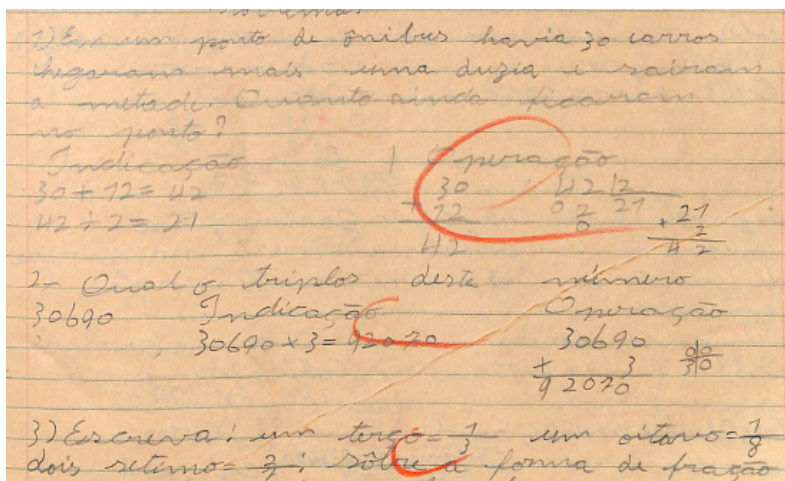 Problemas
1) Em um ponto de ônibus havia 30 carros
chegaram mais uma duzia e sairam
a metade. Quanto ainda ficaram
no ponto?
Indicação Operação
30 + 12 = 42 30 42 2
42 ÷ 2 = 21 + 12 0 2 21 21
42 0 × 2
42
2- Qual o triplos deste número
30690 Indicação Operação
30690 × 3 = 92070 30690
× 3 00
92070 30
3) Escreva: um terço = 1/3 um oitavo = 1/8
dois setimo = 2/7; sôbre a forma de fração